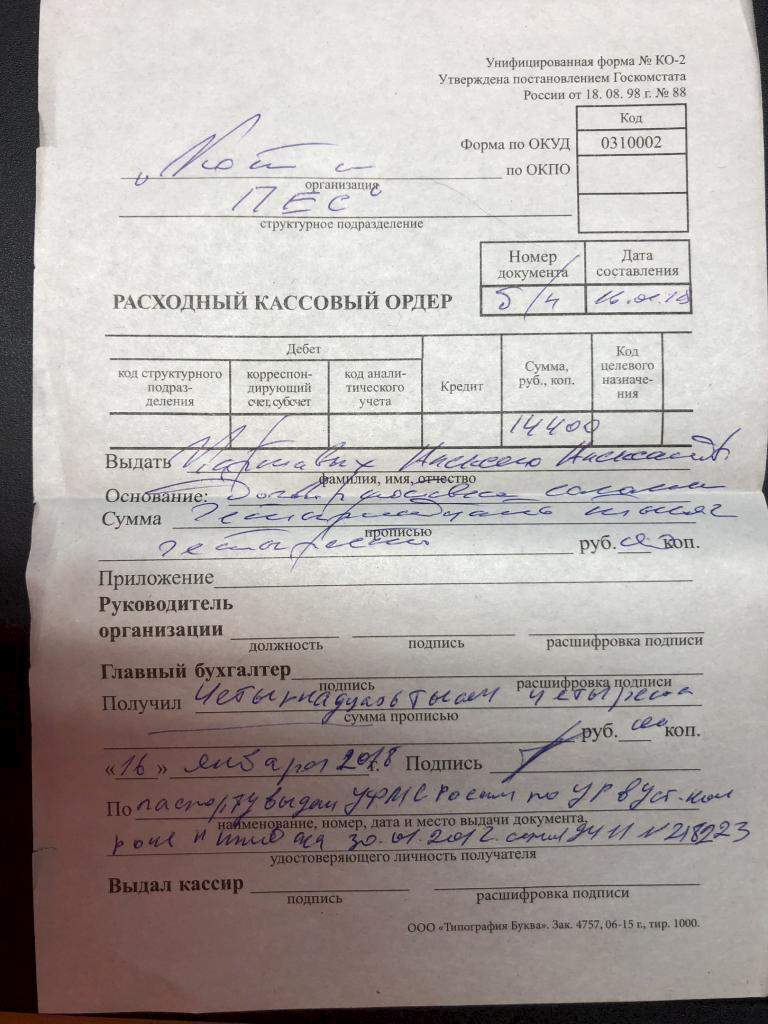 Унифицированная форма № КО-2
Утверждена постановлением Госкомстата
России от 18. 08. 98 г. № 88
Код
Форма по ОКУД 0310002
"Кот и по ОКПО
организация
ПЕС"
структурное подразделение
Номер документа
Дата составления
РАСХОДНЫЙ КАССОВЫЙ ОРДЕР б/н 16.01.18
Дебет
код структурного подраз-
деления
корреспон-
дирующий
счет, субсчет
код анали-
тического
учета
Кредит
Сумма,
руб., коп.
Код
целевого
назначе-
ния
14400
Выдать Алексею Александр
фамилия, имя, отчество
Основание: Договор
Сумма Четырнадцать тысяч
прописью
четыреста руб. коп.
Приложение
Руководитель
организации
должность подпись расшифровка подписи
Главный бухгалтер
подпись расшифровка подписи
Получил Четырнадцать тысяч четыреста
сумма прописью
руб. коп.
«16» января 2018 г. Подпись
По паспорту выдан УФМС России по УР в Уст.-
наименование, номер, дата и место выдачи документа,
30.01.2012. серия 9411 № 218223
удостоверяющего личность получателя
Выдал кассир
подпись расшифровка подписи
ООО «Типография Буква». Зак. 4757, 06-15 г., тир. 1000.